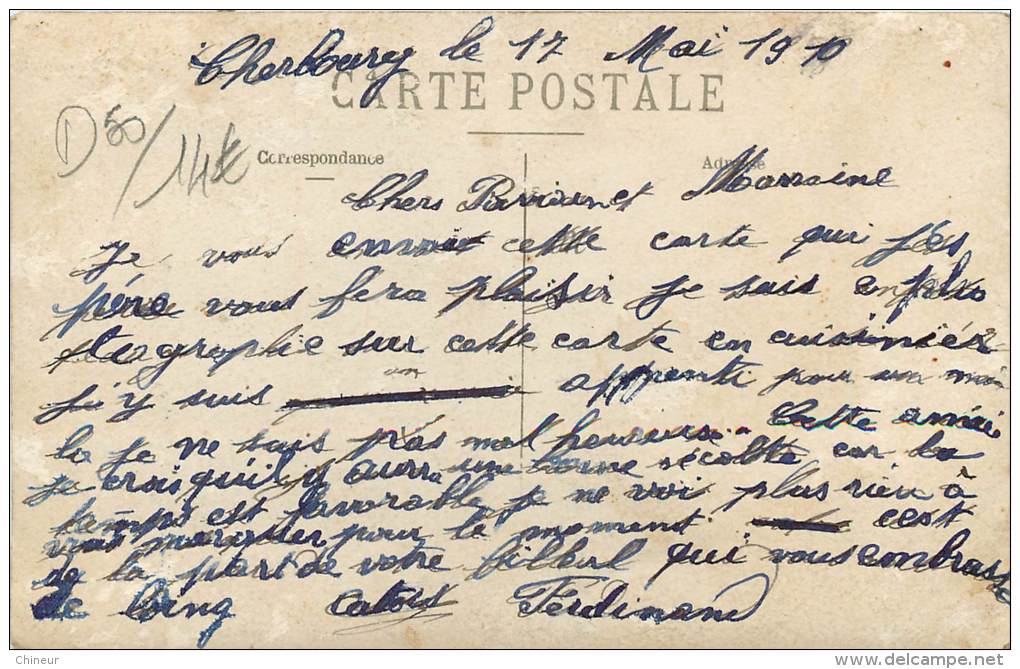 Cherbourg le 17 Mai 1910
CARTE POSTALE
D50/14€
Correspondance
Adresse
Chers Parrain et Marraine
Je vous envoie cette carte qui j'es
père vous fera plaisir je suis en pho
tographie sur cette carte en cuisinier
j'y suis apprenti pour un moi
la je ne suis pas mal heureux.. Cette année
je crois qu'il y aurra une bonne récolte car le
temps est favorable je ne voi plus rien à
vous marquer pour le moment cest
de la part de votre filleul qui vous embrasse
de Cinq Ferdinand
Chineur
http://www.delcampe.net